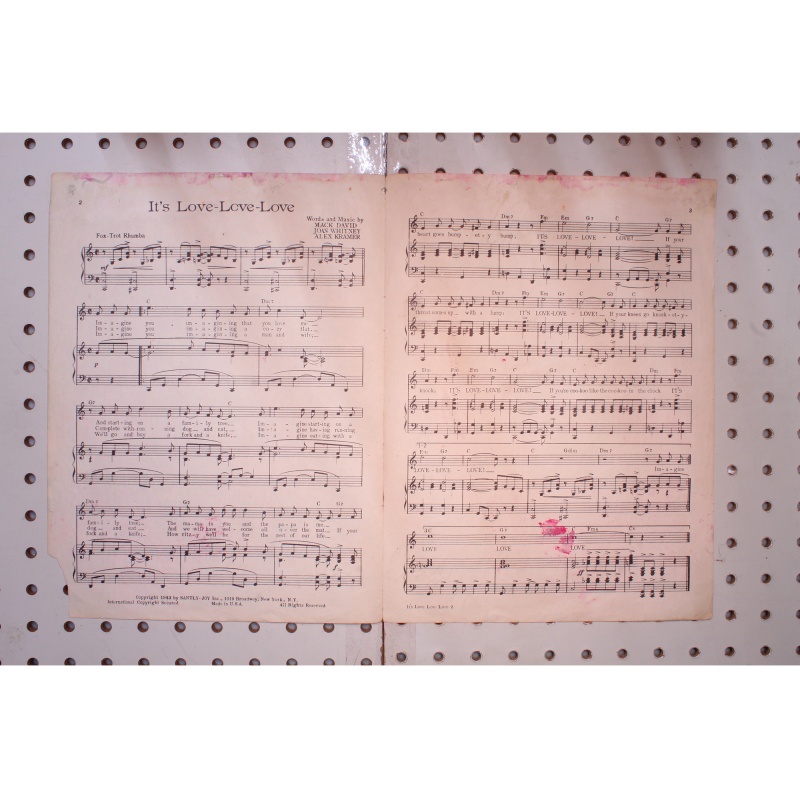 2
It's Love-Love-Love
Words and Music by
MACK DAVID
JOAN WHITNEY
ALEX KRAMER
Fox-Trot Rhumba
mf
C Dm7
Im - a - gine you im - a - gin - ing that you love me
Im - a - gine you im - a - gin - ing a co - zy flat
Im - a - gine you im - a - gin - ing a man and wife
p
G7 C
And start - ing on a fam - i - ly tree Im - a - gine start - ing on a
Complete with run - ning dog and cat, Im - a - gine hav - ing run - ning
We'll go and buy a fork and a knife Im - a - gine eat - ing with a
Dm7 G7 C G7
fam - i - ly tree; The ma - ma is you and the pa - pa is me
dog and cat, And we will have wel - come all o - ver the mat If your
fork and a knife, How it'll be for the rest of our life
Copyright 1943 by SANTLY-JOY Inc., 1619 Broadway, New York, N.Y.
International Copyright Secured Made in U.S.A. All Rights Reserved
3
C Dm7 Fm Em G7 C G7
heart goes bump - et - y bump, IT'S LOVE - LOVE - LOVE! If your
C Dm7 Fm Em G7 C
throat comes up with a lump; IT'S LOVE-LOVE-LOVE! If your knees go knock-et-y-
Dm Fm Em G7 C
knock, IT'S LOVE-LOVE-LOVE! If you're coo-koo like the coo-koo in the clock IT'S
1-2
Em G7 C Gdim Dm7 G7
LOVE - LOVE - LOVE! Im-a-gine
3C G7 C Fm6 C
LOVE LOVE LOVE
It's Love Love Love 2